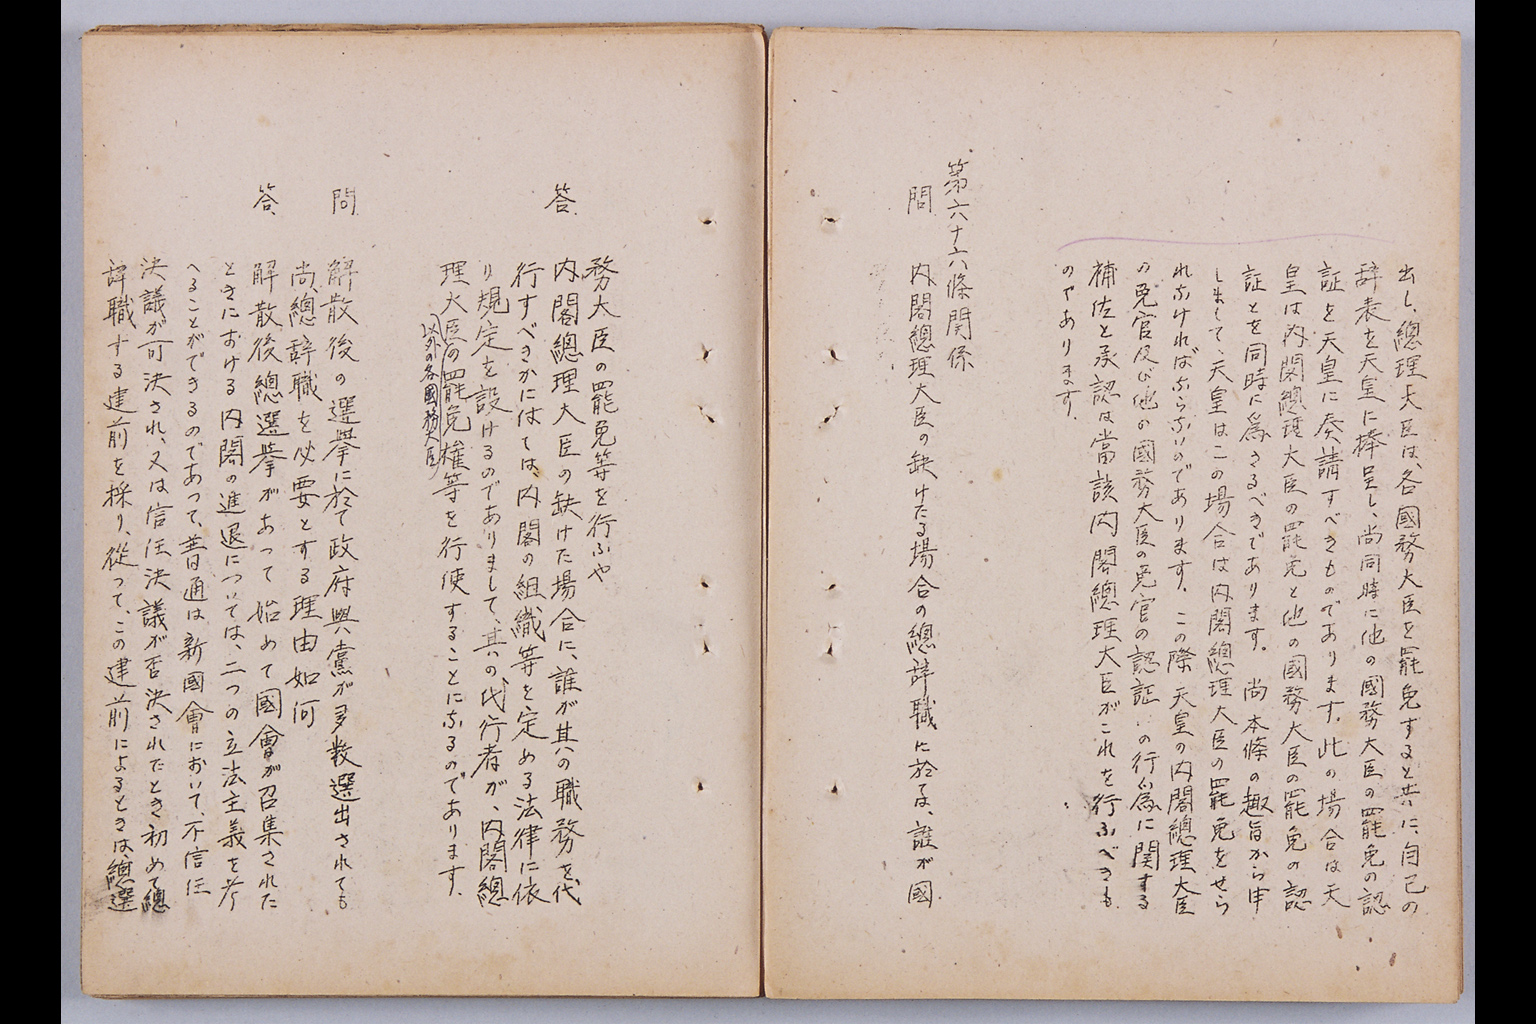 出し、總理大臣は、各國務大臣を罷免すると共に、自己の
辞表を天皇に捧呈し、尚同時に他の國務大臣の罷免の認
証を天皇に奏請すべきものであります。此の場合は天
皇は内閣總理大臣の罷免と他の國務大臣の罷免の認
証とを同時に為さるべきであります。尚本條の趣旨から申
しまして、天皇はこの場合は内閣總理大臣の罷免をせら
れなければならないのであります。この際天皇の内閣總理大臣
の免官及び他の國務大臣の免官の認証の行為に関する
補佐と承認は當該内閣總理大臣がこれを行ふべきも
のであります。
第六十六條関係
問 内閣總理大臣の缺けたる場合の總辞職に於ては、誰が國
務大臣の罷免等を行ふや
答 内閣總理大臣の缺けた場合に、誰が其の職務を代
行すべきかにはては、内閣の組織等を定める法律に依
り規定を設けるのでありまして、其の代行者が、内閣總
理大臣以外の各國務大臣の罷免権等を行使することになるのであります。
問 解散後の選挙に於て政府與黨が多数選出されても
尚總辞職を必要とする理由如何
答 解散後總選挙があつて始めて國會が召集された
ときにおける内閣の進退については、二つの立法主義を考
へることができるのであつて、普通は新國會において、不信任
決議が可決され、又は信任決議が否決されたとき初めて總
辞職する建前を採り、從つて、この建前によるときは、總選